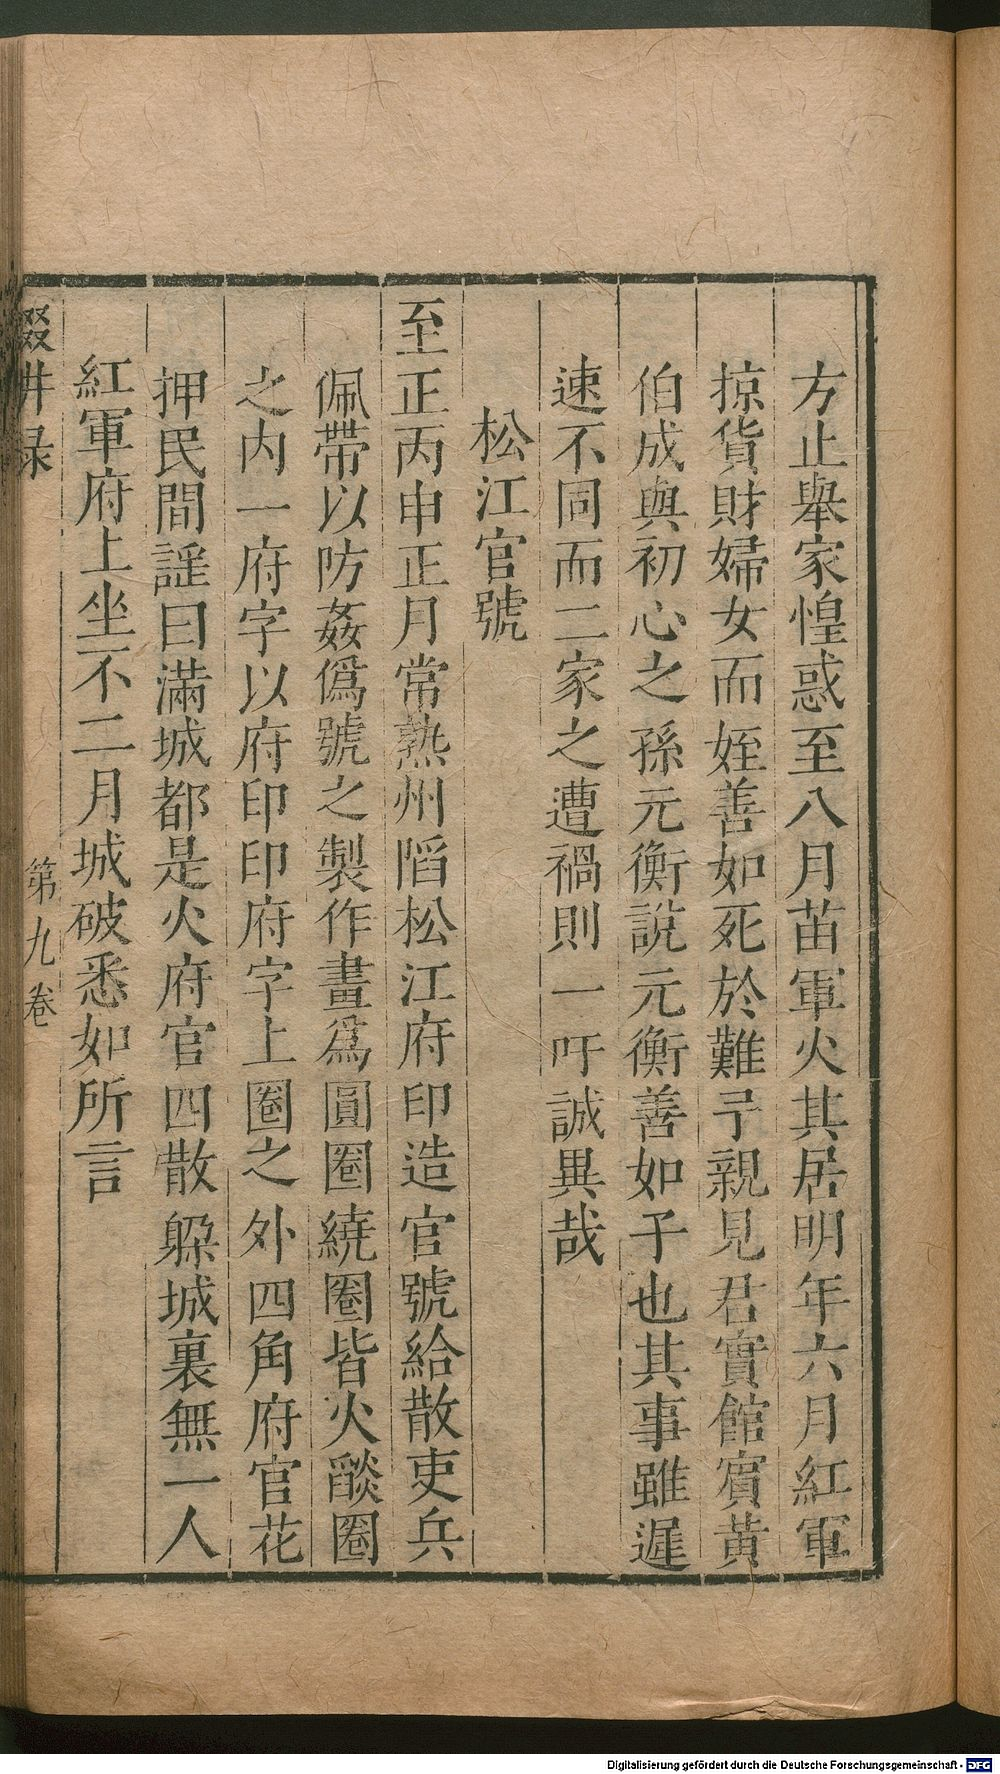 方止舉家惶惑至八月苗軍火其居明年六月紅軍
掠貨財婦女而姪善如死於難予親見君實館賓黃
伯成與初心之孫元衡說元衡善如子也其事雖遲
速不同而二家之遭禍則一吁誠異哉
松江官號
至正丙申正月常熟州陷松江府印造官號給散吏兵
佩帶以防姦僞號之製作畫爲圓圈繞圈皆火燄圈
之內一府字以府印印府字上圈之外四角府官花
押民間謡曰滿城都是火府官四散躱城裏無一人
紅軍府上坐不二月城破悉如所言
輟畊录
第九卷
Digitalisierung gefördert durch die Deutsche Forschungsgemeinschaft - DFG